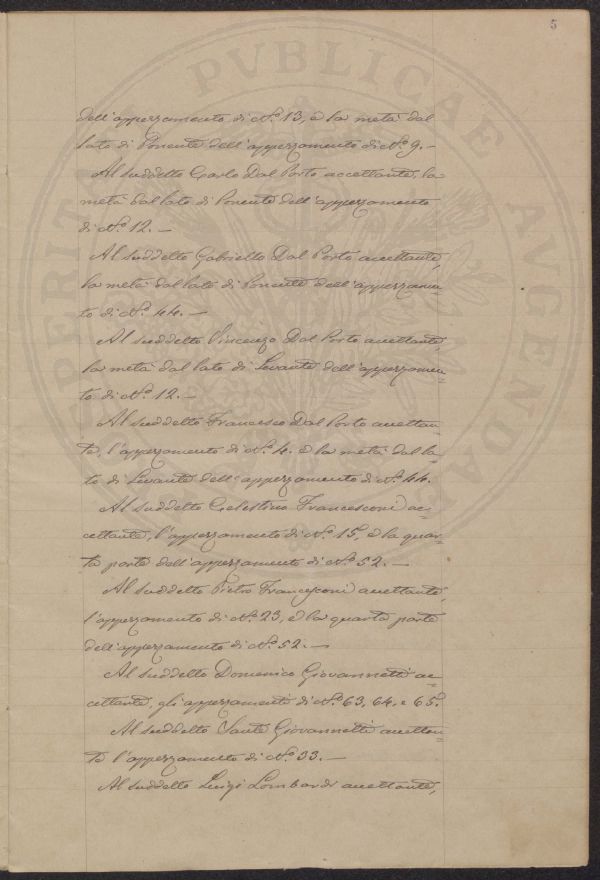 5
dell'appezzamento di N.º 13, e la metà dal
lato di Ponente dell'appezzamento di N.º 9. —
Al suddetto Carlo Dal Porto accettante, la
metà dal lato di Ponente dell'appezzamento
di N.º 12. —
Al suddetto Gabriello Dal Porto accettante,
la metà dal lato di Ponente dell'appezzamen=
to di N.º 44. —
Al suddetto Vincenzo Dal Porto accettante,
la metà dal lato di Levante dell'appezzamen=
to di N.º 12. —
Al suddetto Francesco Dal Porto accettan=
te, l'appezzamento di N.º 4. e la metà dal la=
to di Levante dell'appezzamento di N.º 44.
Al suddetto Celestino Francesconi ac=
cettante, l'appezzamento di N.º 15, e la quar=
ta parte dell'appezzamento di N.º 52. —
Al suddetto Pietro Francesconi accettante,
l'appezzamento di N.º 23, e la quarta parte
dell'appezzamento di N.º 52. —
Al suddetto Domenico Giovannetti ac=
cettante, gli appezzamenti di N.º 63, 64, e 65.
Al suddetto Sante Giovannetti accettan=
te l'appezzamento di N.º 33. —
Al suddetto Luigi Lombardi accettante,
PUBLICAE
AUGENDAE